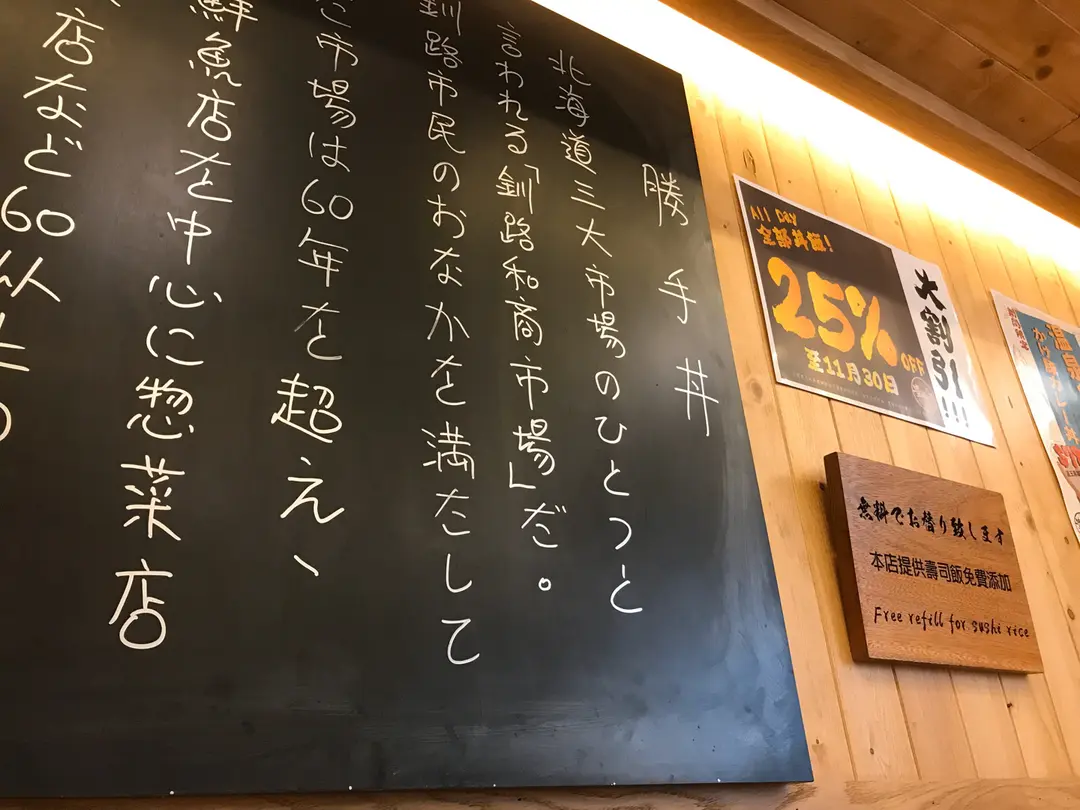 勝手丼
北海道三大市場のひとつと
言われる「釧路和商市場」だ。
釧路市民のおなかを満たして
市場は60年を超え、
鮮魚店を中心に惣菜店
店など60以上の
All Day
全部丼飯!
25% OFF
至11月30日
大割引!!!
温泉
無料でお替り致します
本店提供壽司飯免費添加
Free refill for sushi rice